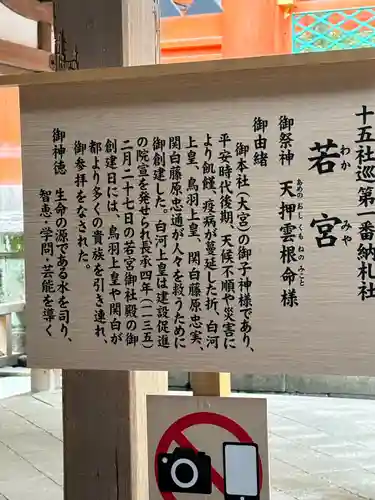 十五社巡第一番納札社
若宮
わか みや
御祭神 天押雲根命様
あめのおしくもねのみこと
御由緒
御本社(大宮)の御子神様であり、
平安時代後期、天候不順や災害に
より飢饉、疫病が蔓延した折、白河
上皇、鳥羽上皇、関白藤原忠実、
関白藤原忠通が人々を救うために
御創建した。白河上皇は建設促進
の院宣を発せられ長承四年(一一三五)
二月二十七日の若宮御社殿の御
創建日には、鳥羽上皇や関白が
都より多くの貴族を引き連れ、
御参拝をなされた。
御神徳 生命の源である水を司り、
智恵・学問・芸能を導く